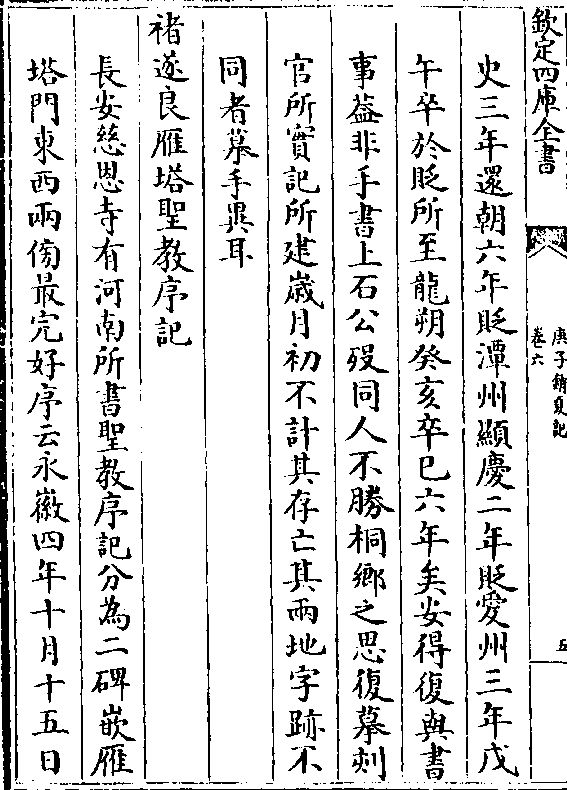 欽定四庫全書
庚子銷夏記
卷六
五
史三年還朝六年貶潭州顯慶二年貶愛州三年戊
午卒於貶所至龍朔癸亥卒已六年矣安得復與書
事葢非手書上石公歿同人不勝桐鄉之思復摹刻
官所實記所建嵗月初不計其存亡其兩地字跡不
同者摹手異耳
褚遂良雁塔聖教序記
長安慈恩寺有河南所書聖教序記分為二碑嵌雁
塔門東西兩傍最完好序云永徽四年十月十五日